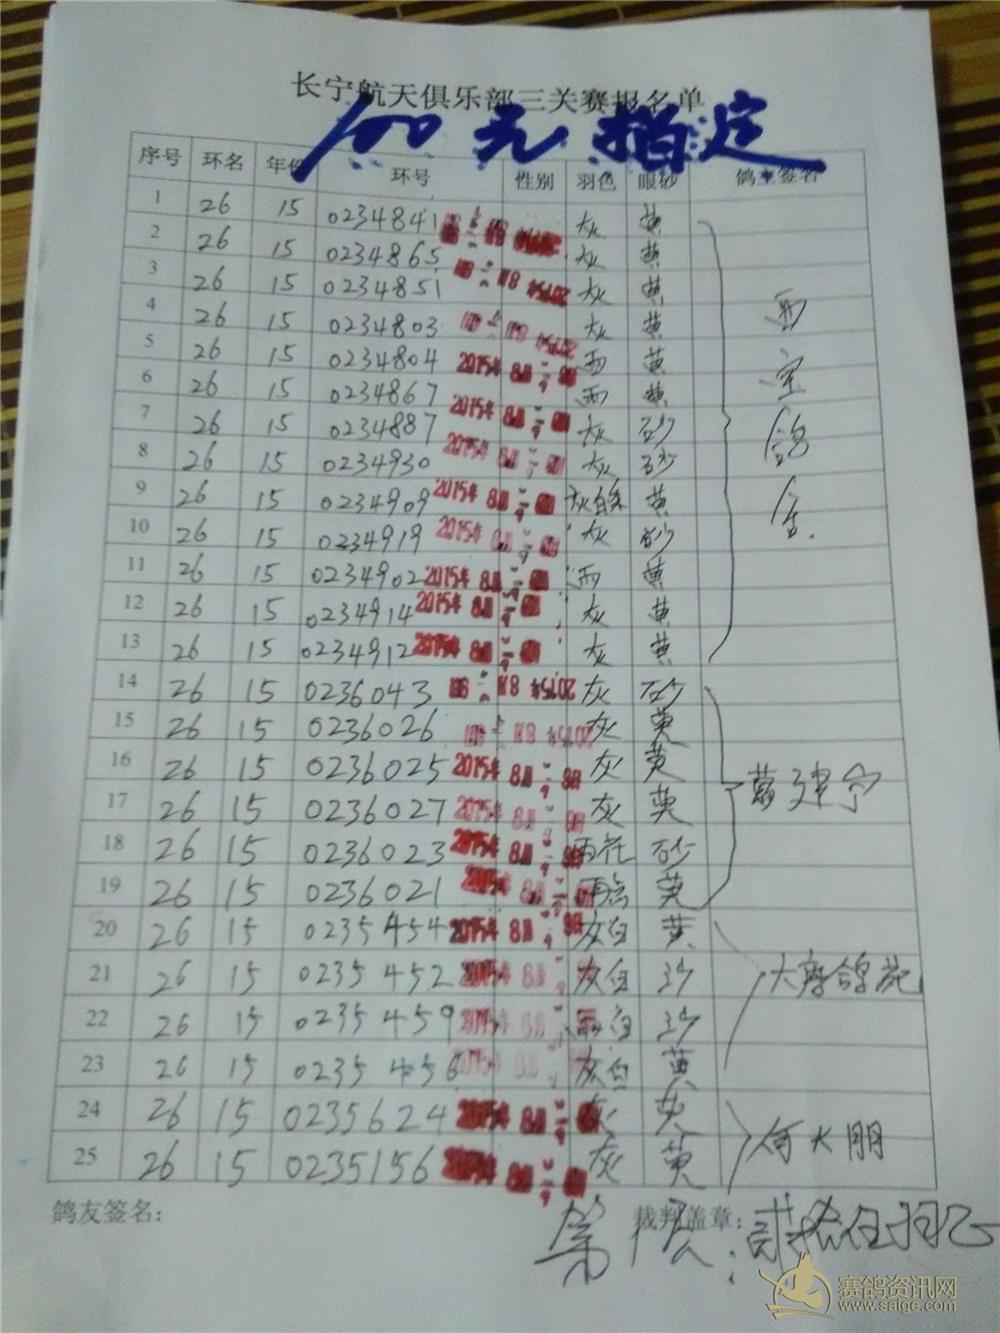 长宁航天俱乐部三关赛报名单
100元指定
序号 环名 年份 环号 性别 羽色 眼砂 鸽主签名
1 26 15 0234841 灰 黄
2 26 15 0234865 灰 黄
3 26 15 0234851 2015年8月 灰 黄
4 26 15 0234803 2015年 灰 黄
5 26 15 0234804 2015年8月 雨 黄
6 26 15 0234867 2015年8月 雨 黄
7 26 15 0234887 2015年8月 灰 砂
8 26 15 0234930 2015年8月 灰 砂
9 26 15 0234909 2015年8月 灰白条 黄
10 26 15 0234919 2015年8月 灰 砂
11 26 15 0234902 2015年8月 雨 黄
12 26 15 0234914 2015年8月 灰 黄
13 26 15 0234912 2015年8月 灰 黄
宝鸽舍
14 26 15 0236043 2015年8月 灰 砂
15 26 15 0236026 2015年8月 灰 黄
16 26 15 0236025 2015年8月 灰 黄
17 26 15 0236027 2015年8月 灰 黄
18 26 15 0236023 2015年8月 雨花 砂
19 26 15 0236021 2015年8月 雨 黄
建宁
20 26 15 0235454 2015年8月 灰白 黄
21 26 15 0235452 2015年8月 灰白 沙
22 26 15 0235459 2015年8月 雨白 沙
23 26 15 0235456 2015年8月 灰白 黄
大 鸽苑
24 26 15 0235624 2015年8月 灰 黄
25 26 15 0235156 2015年8月 灰 黄
何大朋
鸽友签名： 裁判盖章：
赛鸽资讯网
www.saige.com